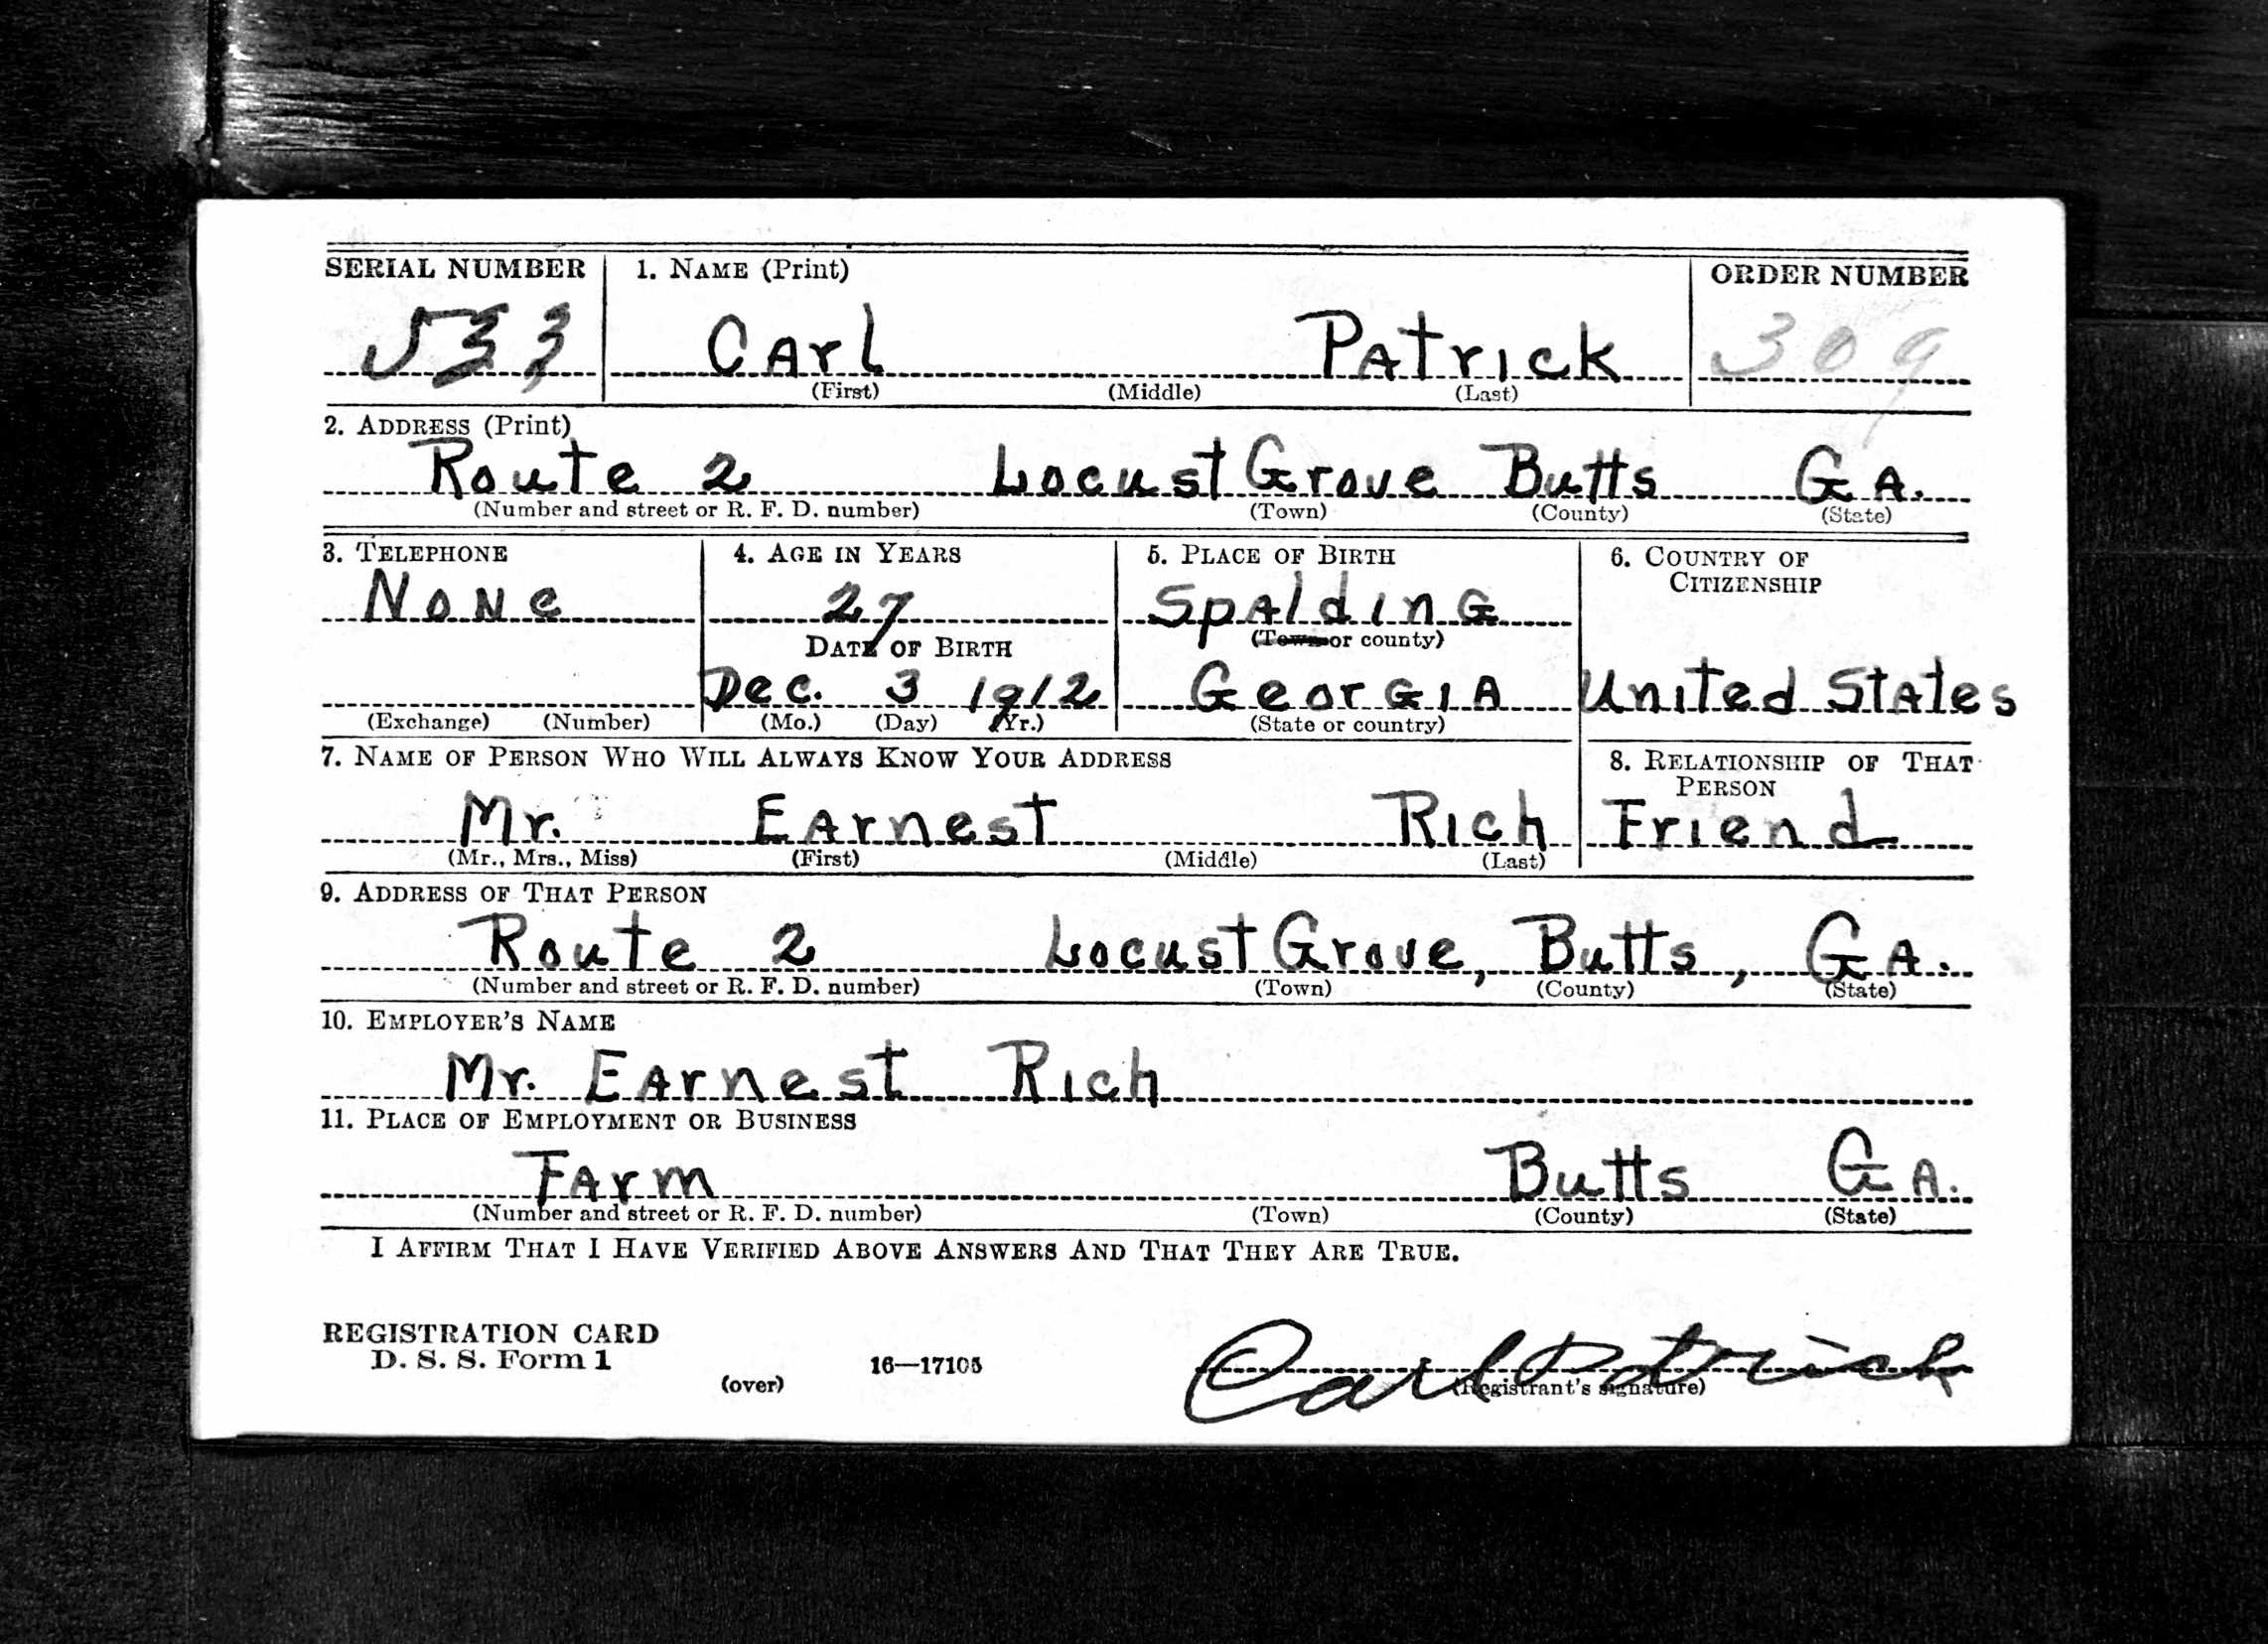 SERIAL NUMBER 1. NAME (Print) ORDER NUMBER
533 Carl Patrick 309
(First) (Middle) (Last)
2. ADDRESS (Print)
Route 2 Locust Grove Butts GA.
(Number and street or R. F. D. number) (Town) (County) (State)
3. TELEPHONE 4. AGE IN YEARS 5. PLACE OF BIRTH 6. COUNTRY OF
CITIZENSHIP
None 27 Spalding
DATE OF BIRTH (Town or county)
Dec. 3 1912 Georgia United States
(Exchange) (Number) (Mo.) (Day) (Yr.) (State or country)
7. NAME OF PERSON WHO WILL ALWAYS KNOW YOUR ADDRESS 8. RELATIONSHIP OF THAT
PERSON
Mr. Earnest Rich Friend
(Mr., Mrs., Miss) (First) (Middle) (Last)
9. ADDRESS OF THAT PERSON
Route 2 Locust Grove, Butts, GA.
(Number and street or R. F. D. number) (Town) (County) (State)
10. EMPLOYER'S NAME
Mr. Earnest Rich
11. PLACE OF EMPLOYMENT OR BUSINESS
Farm Butts GA.
(Number and street or R. F. D. number) (Town) (County) (State)
I AFFIRM THAT I HAVE VERIFIED ABOVE ANSWERS AND THAT THEY ARE TRUE.
REGISTRATION CARD
D. S. S. Form 1 16—17105 Carl Patrick
(over) (Registrant's signature)